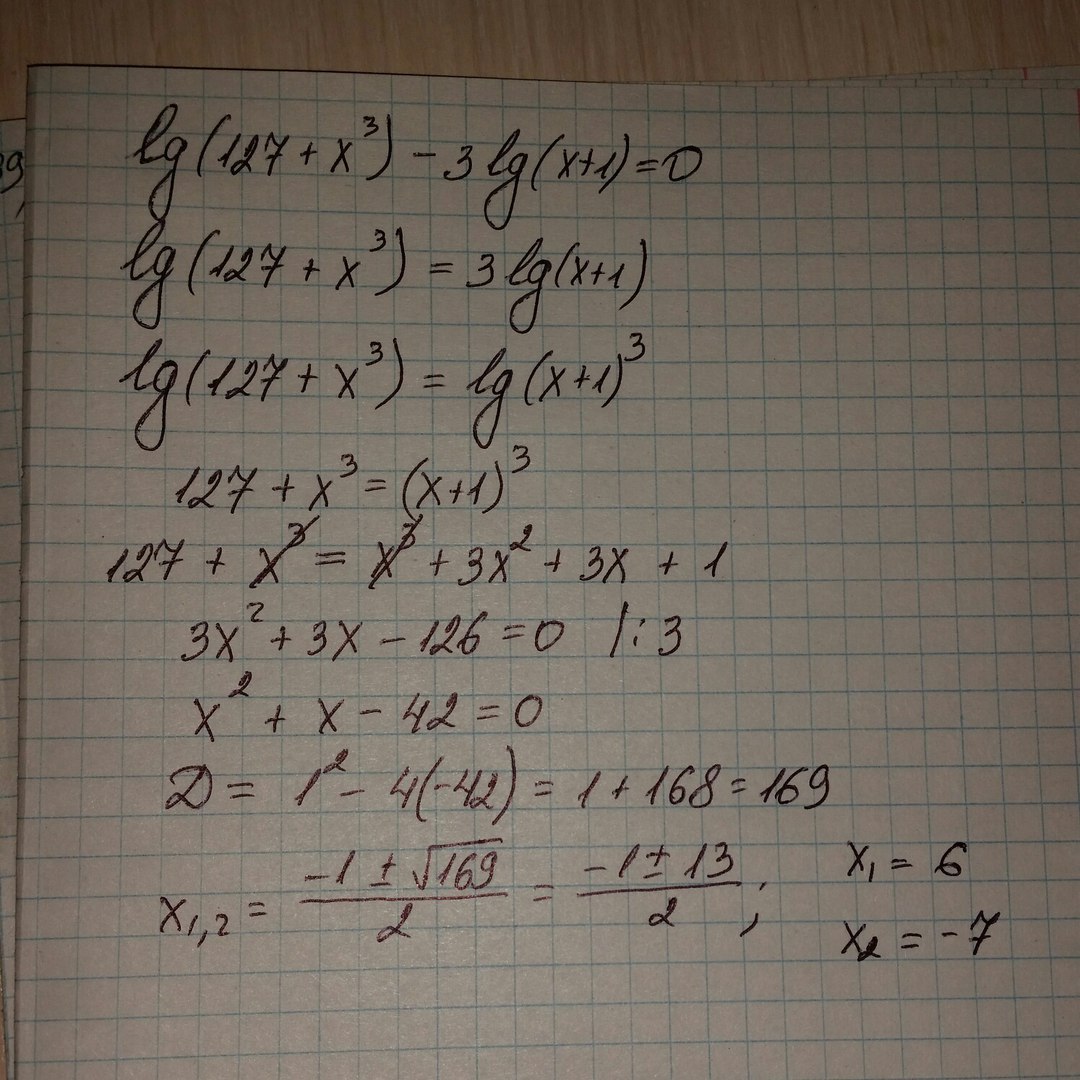 lg(127 + x³) - 3lg(x+1) = 0
lg(127 + x³) = 3lg(x+1)
lg(127 + x³) = lg(x+1)³
127 + x³ = (x+1)³
127 + x³ = x³ + 3x² + 3x + 1
3x² + 3x - 126 = 0 /:3
x² + x - 42 = 0
D = 1² - 4(-42) = 1 + 168 = 169
x₁,₂ = (-1 ± √169)/2 = (-1 ± 13)/2 ; x₁ = 6
x₂ = -7